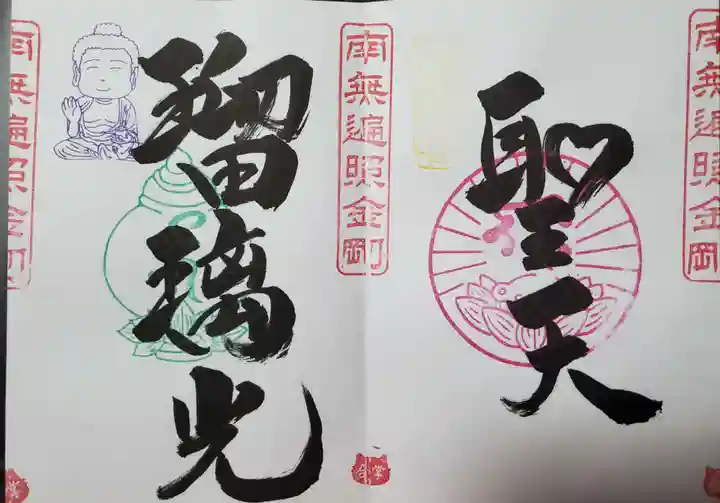 南無遍照金剛
聖天
南無遍照金剛
瑠璃光
南無遍照金剛
合掌
合掌